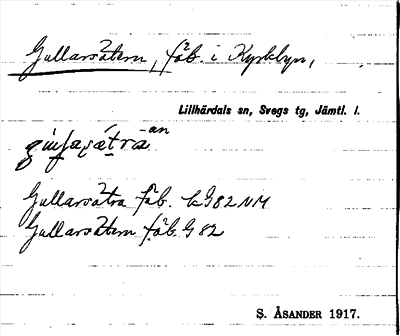 Gullarsätern, fäb. i Kyrkbyn,
Lillhärdals sn, Svegs tg, Jämtl. l.
Gullarsätra fäb. G82 NM
Gullarsätern fäb. G 82
S. ÅSANDER 1917.